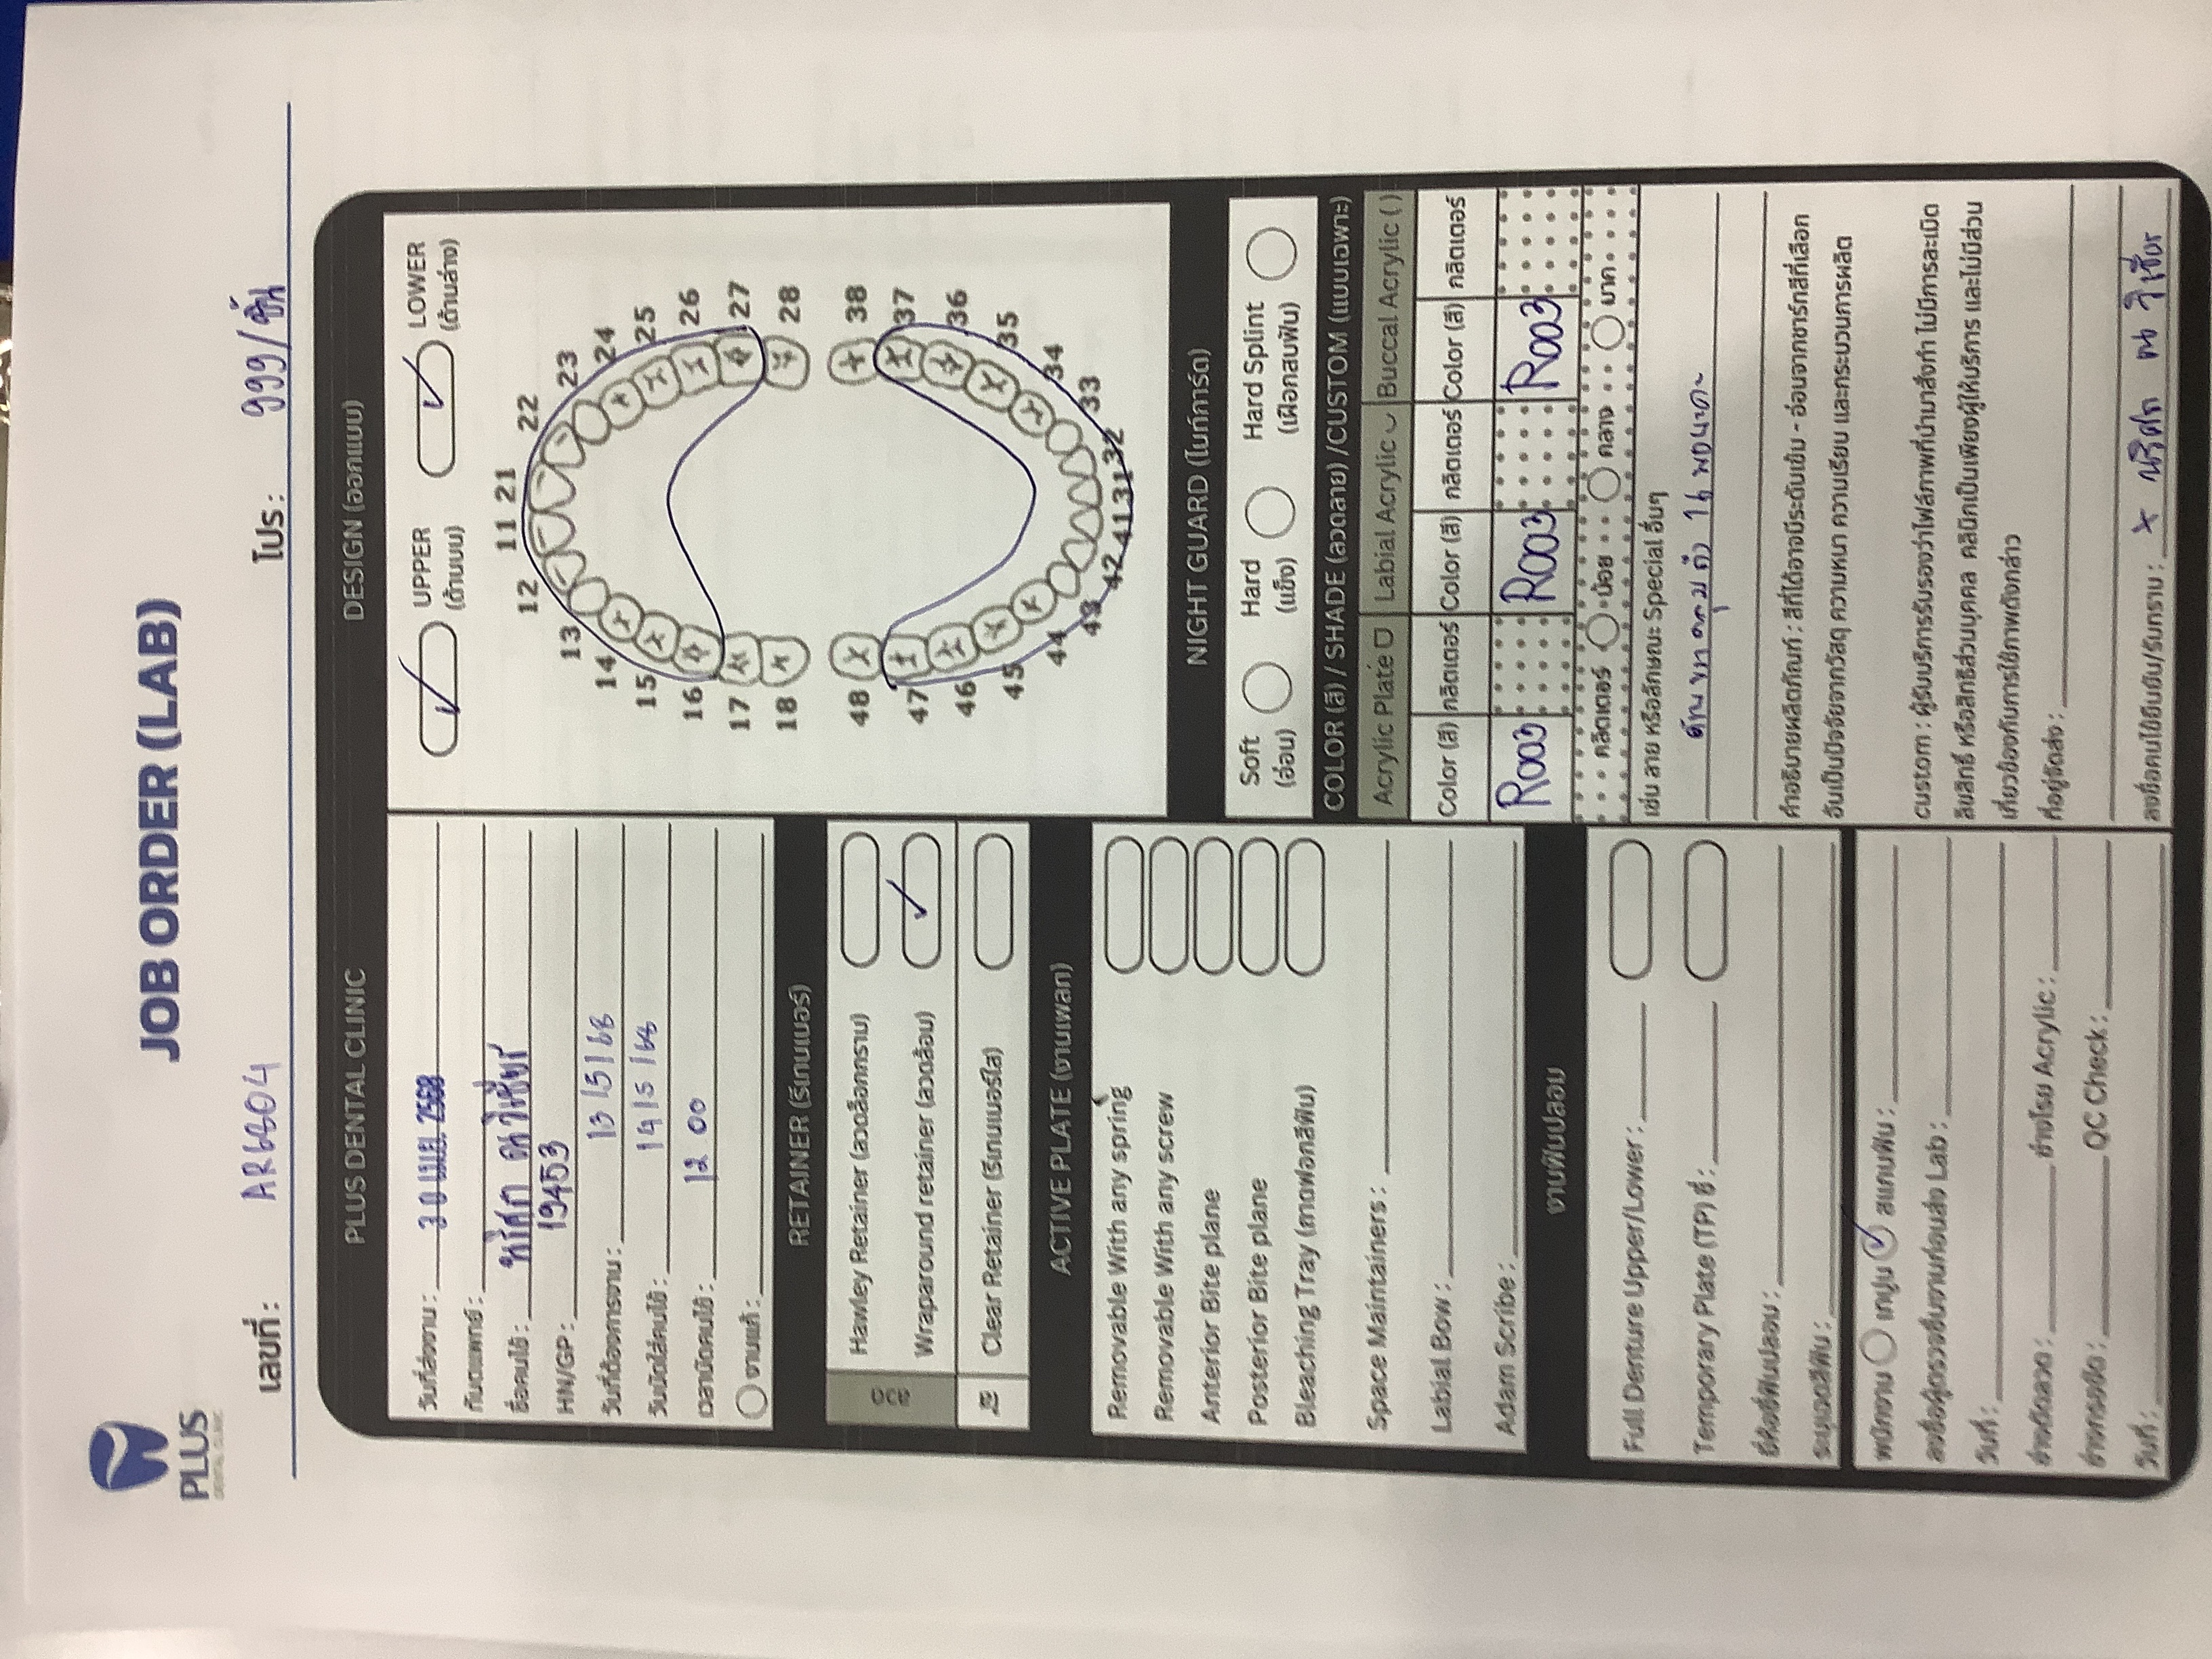 PLUS
DENTAL CLINIC
JOB ORDER (LAB)
เลขที่ : AR6804
โปร : 999/ชิ้น
PLUS DENTAL CLINIC
วันที่ส่งงาน : 30 เม.ย. 2568
ทันตแพทย์ :
ชื่อคนไข้ : นริศา ณ วิเชียร
HN/GP : 19453
วันที่ต้องการงาน : 13/5/68
วันนัดใส่คนไข้ : 14/5/68
เวลานัดคนไข้ : 12 00
งานแก้ :
RETAINER (รีเทนเนอร์)
ลวด
Hawley Retainer (ลวดล็อกกราม)
Wraparound retainer (ลวดล้อม)
ใส
Clear Retainer (รีเทนเนอร์ใส)
ACTIVE PLATE (งานเพลท)
Removable With any spring
Removable With any screw
Anterior Bite plane
Posterior Bite plane
Bleaching Tray (ถาดฟอกสีฟัน)
Space Maintainers :
Labial Bow :
Adam Scribe :
งานฟันปลอม
Full Denture Upper/Lower :
Temporary Plate (TP) ซี่ :
ยี่ห้อซี่ฟันปลอม :
ระบุเฉดสีฟัน :
พนักงาน เทปูน สแกนฟัน :
ลงชื่อผู้ตรวจชิ้นงานก่อนส่ง Lab :
วันที่ :
ช่างดัดลวด : ช่างโรย Acrylic :
ช่างกรอขัด : QC Check :
วันที่ :
DESIGN (ออกแบบ)
UPPER
(ด้านบน)
LOWER
(ด้านล่าง)
11 21
12 22
13 23
14 24
15 25
16 26
17 27
18 28
48 38
47 37
46 36
45 35
44 34
43 33
42 41 31 32
NIGHT GUARD (ไนท์การ์ด)
Soft
(อ่อน)
Hard
(แข็ง)
Hard Splint
(เฝือกสบฟัน)
COLOR (สี) / SHADE (ลวดลาย) /CUSTOM (แบบเฉพาะ)
Acrylic Plate Labial Acrylic Buccal Acrylic ( )
Color (สี) กลิตเตอร์ Color (สี) กลิตเตอร์ Color (สี) กลิตเตอร์
R003 R003 R003
กลิตเตอร์ น้อย กลาง มาก
เช่น ลาย หรือลักษณะ Special อื่นๆ
ถึง 16 พอนะคะ
คำอธิบายผลิตภัณฑ์ : สีที่ได้อาจมีระดับเข้ม - อ่อนจากชาร์ทสีที่เลือก
อันเป็นปัจจัยจากวัสดุ ความหนา ความเรียบ และกระบวนการผลิต
custom : ผู้รับบริการรับรองว่าไฟล์ภาพที่นำมาสั่งทำ ไม่มีการละเมิด
ลิขสิทธิ์ หรือสิทธิส่วนบุคคล คลินิกเป็นเพียงผู้ให้บริการ และไม่มีส่วน
เกี่ยวข้องกับการใช้ภาพดังกล่าว
ที่อยู่จัดส่ง :
ลงชื่อคนไข้ยืนยัน/รับทราบ : x นริศา ณ วิเชียร